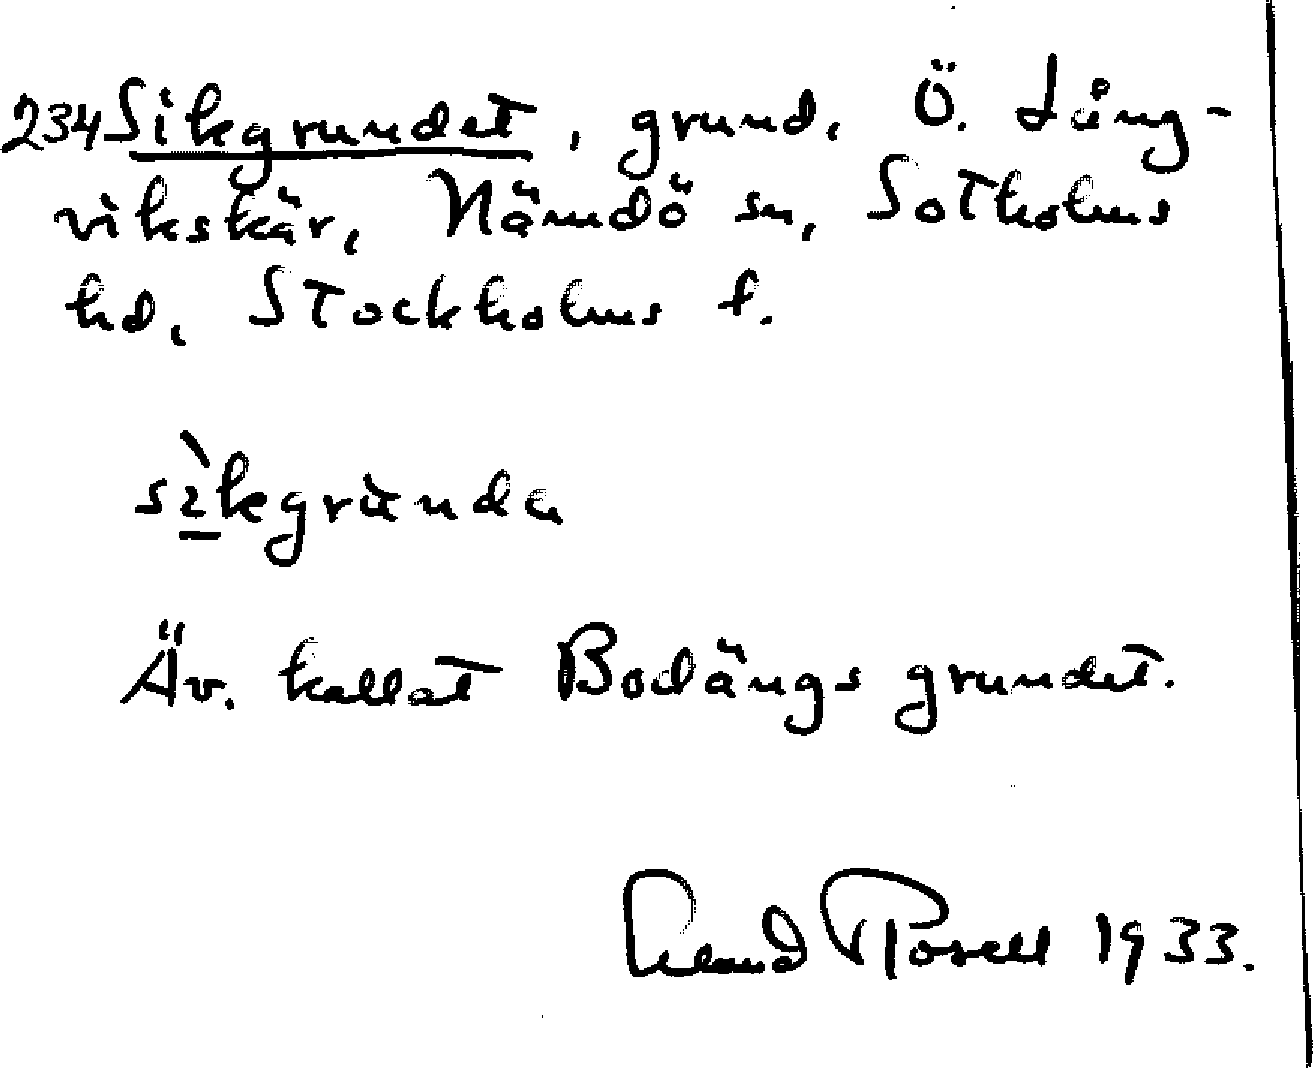 234 Sikgrundet, grund, Ö. Lång-
vikskär, Nämdö sn, Sotholms
hd, Stockholms l.
sìkgrùnda
Äv. kallat Bodängsgrundet.
Rosell 1933.